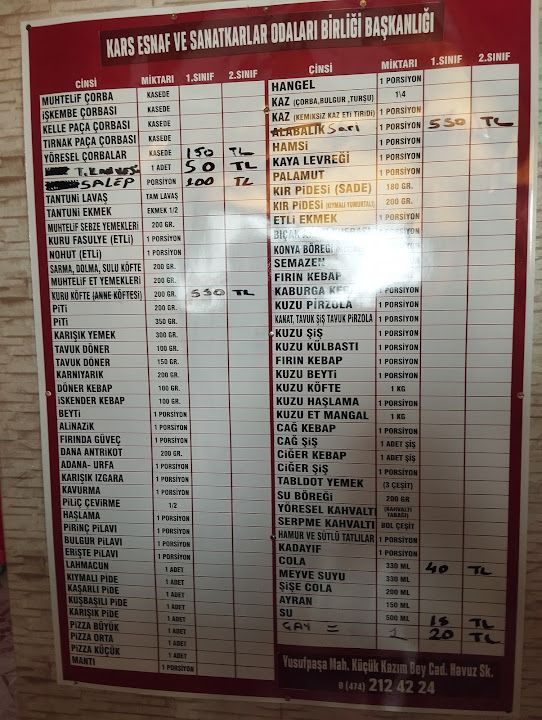 KARS ESNAF VE SANATKARLAR ODALARI BİRLİĞİ BAŞKANLIĞI
CİNSİ MİKTARI 1.SINIF 2.SINIF
MUHTELİF ÇORBA KASEDE
İŞKEMBE ÇORBASI KASEDE
KELLE PAÇA ÇORBASI KASEDE
TIRNAK PAÇA ÇORBASI KASEDE
YÖRESEL ÇORBALAR KASEDE 150 TL
T.KAHVESİ 1 ADET 50 TL
SALEP PORSİYON 100 TL
TANTUNİ LAVAŞ TAM LAVAŞ
TANTUNİ EKMEK EKMEK 1/2
MUHTELİF SEBZE YEMEKLERİ 200 GR.
KURU FASULYE (ETLİ) 1 PORSİYON
NOHUT (ETLİ) 1 PORSİYON
SARMA, DOLMA, SULU KÖFTE 200 GR.
MUHTELİF ET YEMEKLERİ 200 GR.
KURU KÖFTE (ANNE KÖFTESİ) 200 GR. 550 TL
PİTİ 200 GR.
PİTİ 350 GR.
KARIŞIK YEMEK 300 GR.
TAVUK DÖNER 100 GR.
TAVUK DÖNER 150 GR.
KARNIYARIK 200 GR.
DÖNER KEBAP 100 GR.
İSKENDER KEBAP 100 GR.
BEYTİ 1 PORSİYON
ALİNAZİK 1 PORSİYON
FIRINDA GÜVEÇ 1 PORSİYON
DANA ANTRİKOT 200 GR.
ADANA- URFA 1 PORSİYON
KARIŞIK IZGARA 1 PORSİYON
KAVURMA 1 PORSİYON
PİLİÇ ÇEVİRME 1/2
HAŞLAMA 1 PORSİYON
PİRİNÇ PİLAVI 1 PORSİYON
BULGUR PİLAVI 1 PORSİYON
ERİŞTE PİLAVI 1 PORSİYON
LAHMACUN 1 ADET
KIYMALI PİDE 1 ADET
KAŞARLI PİDE 1 ADET
KUŞBAŞILI PİDE 1 ADET
KARIŞIK PİDE 1 ADET
PİZZA BÜYÜK 1 ADET
PİZZA ORTA 1 ADET
PİZZA KÜÇÜK 1 ADET
MANTI 1 PORSİYON
CİNSİ MİKTARI 1.SINIF 2.SINIF
HANGEL 1 PORSİYON
KAZ (ÇORBA,BULGUR ,TURŞU) 1\4
KAZ (KEMİKSİZ KAZ ETİ TİRİDİ) 1 PORSİYON
ALABALIK Sarı 1 PORSİYON 550 TL
HAMSİ 1 PORSİYON
KAYA LEVREĞİ 1 PORSİYON
PALAMUT 1 PORSİYON
KIR PİDESİ (SADE) 180 GR.
KIR PİDESİ (KIYMALI YUMURTALI) 200 GR.
ETLİ EKMEK 1 PORSİYON
BIÇAK 1 PORSİYON
KONYA BÖREĞİ 1 PORSİYON
SEMAZEN
FIRIN KEBAP
KABURGA 1 PORSİYON
KUZU PİRZOLA 1 PORSİYON
KANAT, TAVUK ŞİŞ TAVUK PİRZOLA 1 PORSİYON
KUZU ŞİŞ 1 PORSİYON
KUZU KÜLBASTI 1 PORSİYON
FIRIN KEBAP 1 PORSİYON
KUZU BEYTİ 1 PORSİYON
KUZU KÖFTE 1 KG
KUZU HAŞLAMA 1 PORSİYON
KUZU ET MANGAL 1 KG
CAĞ KEBAP 1 PORSİYON
CAĞ ŞİŞ 1 ADET ŞİŞ
CİĞER KEBAP 1 ADET ŞİŞ
CİĞER ŞİŞ 1 PORSİYON
TABLDOT YEMEK (3 ÇEŞİT)
SU BÖREĞİ 200 GR
YÖRESEL KAHVALTI (KAHVALTI TABAĞI)
SERPME KAHVALTI BOL ÇEŞİT
HAMUR VE SÜTLÜ TATLILAR 1 PORSİYON
KADAYIF 1 PORSİYON
COLA 330 ML 40 TL
MEYVE SUYU 330 ML
ŞİŞE COLA 200 ML
AYRAN 150 ML
SU 500 ML 15 TL
ÇAY = 1 20 TL
Yusufpaşa Mah. Küçük Kazım Bey Cad. Havuz Sk.
0 (474) 212 42 24